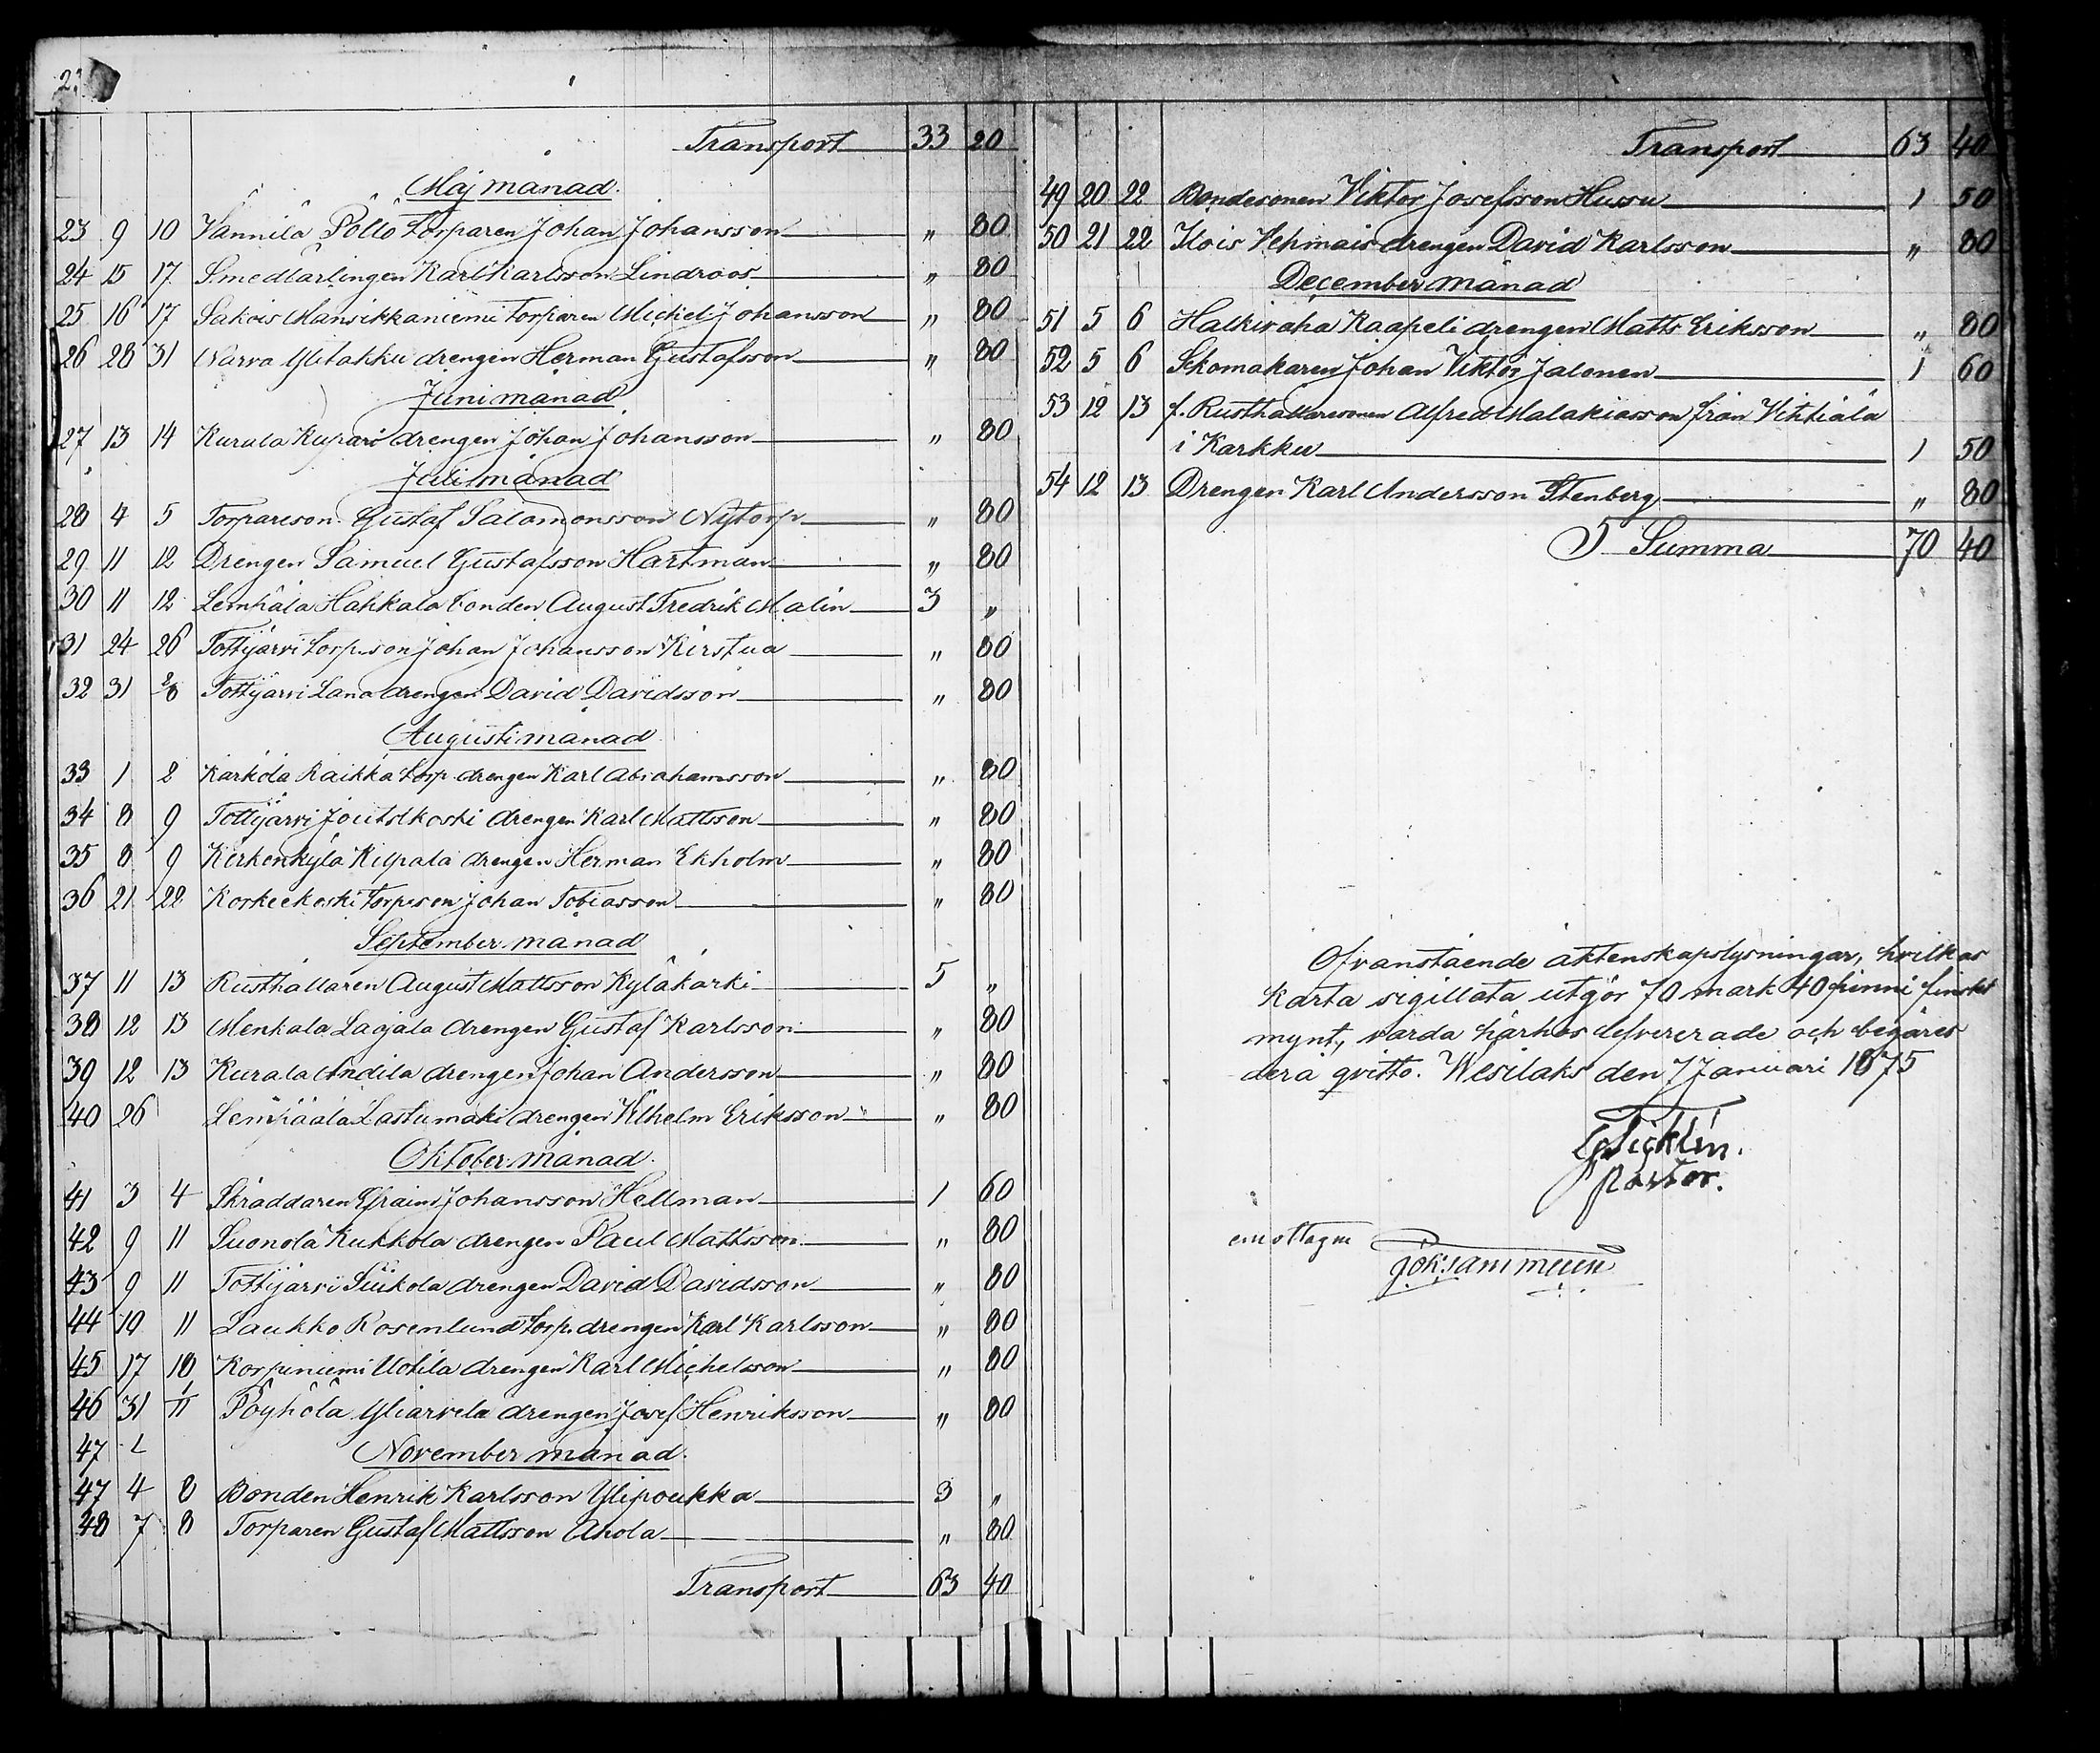 Transport 33 20
Maj månad.
23 9 10 Vännilä Pöllö torparen Johan Johansson " 80
24 15 17 Smedlärlingen Karl Karlsson Lindroos " 80
25 16 17 Sakois Mansikkaniemi torparen Mickel Johansson " 80
26 28 31 Narva Ylitakku drengen Herman Gustafsson " 80
Juni månad
27 13 14 Kurala Kupari drengen Johan Johansson " 80
Juli månad
28 4 5 Torpareson Gustaf Salomonsson Nytorp " 80
29 11 12 Drengen Samuel Gustafsson Hartman " 80
30 11 12 Lemhälä Hahkala bonden August Fredrik Malin 3 "
31 24 26 Tottijärvi torp.son Johan Johansson Kirstua " 80
32 31 2/8 Tottijärvi Lana drengen David Davidsson " 80
Augusti månad
33 1 2 Karkola Raikka torp. drengen Karl Abrahamsson " 80
34 8 9 Tottijärvi Joutsikoski drengen Karl Mattsson " 80
35 8 9 Kirkonkylä Kilpala drengen Herman Ekholm " 80
36 21 22 Korkeekoski torpeson Johan Tobiasson " 80
September månad
37 11 13 Rusthållaren August Mattsson Kyläkärki 5 "
38 12 13 Menkala Laojala drengen Gustaf Karlsson " 80
39 12 13 Kurala Andila drengen Johan Andersson " 80
40 26 Lempäälä Lastumäki drengen Vilhelm Eriksson " 80
Oktober månad.
41 3 4 Skräddaren Efraim Johansson Hellman 1 60
42 9 11 Suonola Kukkola drengen Paul Mattsson " 80
43 9 11 Tottijärvi Siukola drengen David Davidsson " 80
44 10 11 Laukko Rosenlund torp. drengen Karl Karlsson " 80
45 17 18 Korpiniemi Uotila drengen Karl Michelsson " 80
46 31 1/11 Pöyhölä Yliarvela drengen Josef Henriksson " 80
47 November månad.
47 4 8 Bonden Henrik Karlsson Ylipoukka 3 "
48 7 8 Torparen Gustaf Mattsson Ahola " 80
Transport 63 40
Transport 63 40
49 20 22 Bondesonen Viktor Josefsson Hussu 1 50
50 21 22 Ilois Vehmais drengen David Karlsson " 80
December månad
51 5 6 Halkivaha Kaapeli drengen Matts Eriksson " 80
52 5 6 Skomakaren Johan Viktor Jalonen 1 60
53 12 13 f. Rusthållaresonen Alfred Malakiasson från Vihtiälä
i Karkku 1 50
54 12 13 Drengen Karl Andersson Stenberg " 80
Summa 70 40
Ofvanstående äktenskapslysningar, hvilkas
karta sigillata utgör 70 mark 40 penni finskt
mynt, varda härhos lefvererade och begäres
derå qvitto. Wesilaks den 7 Januari 1875
Pastor.
emottagne